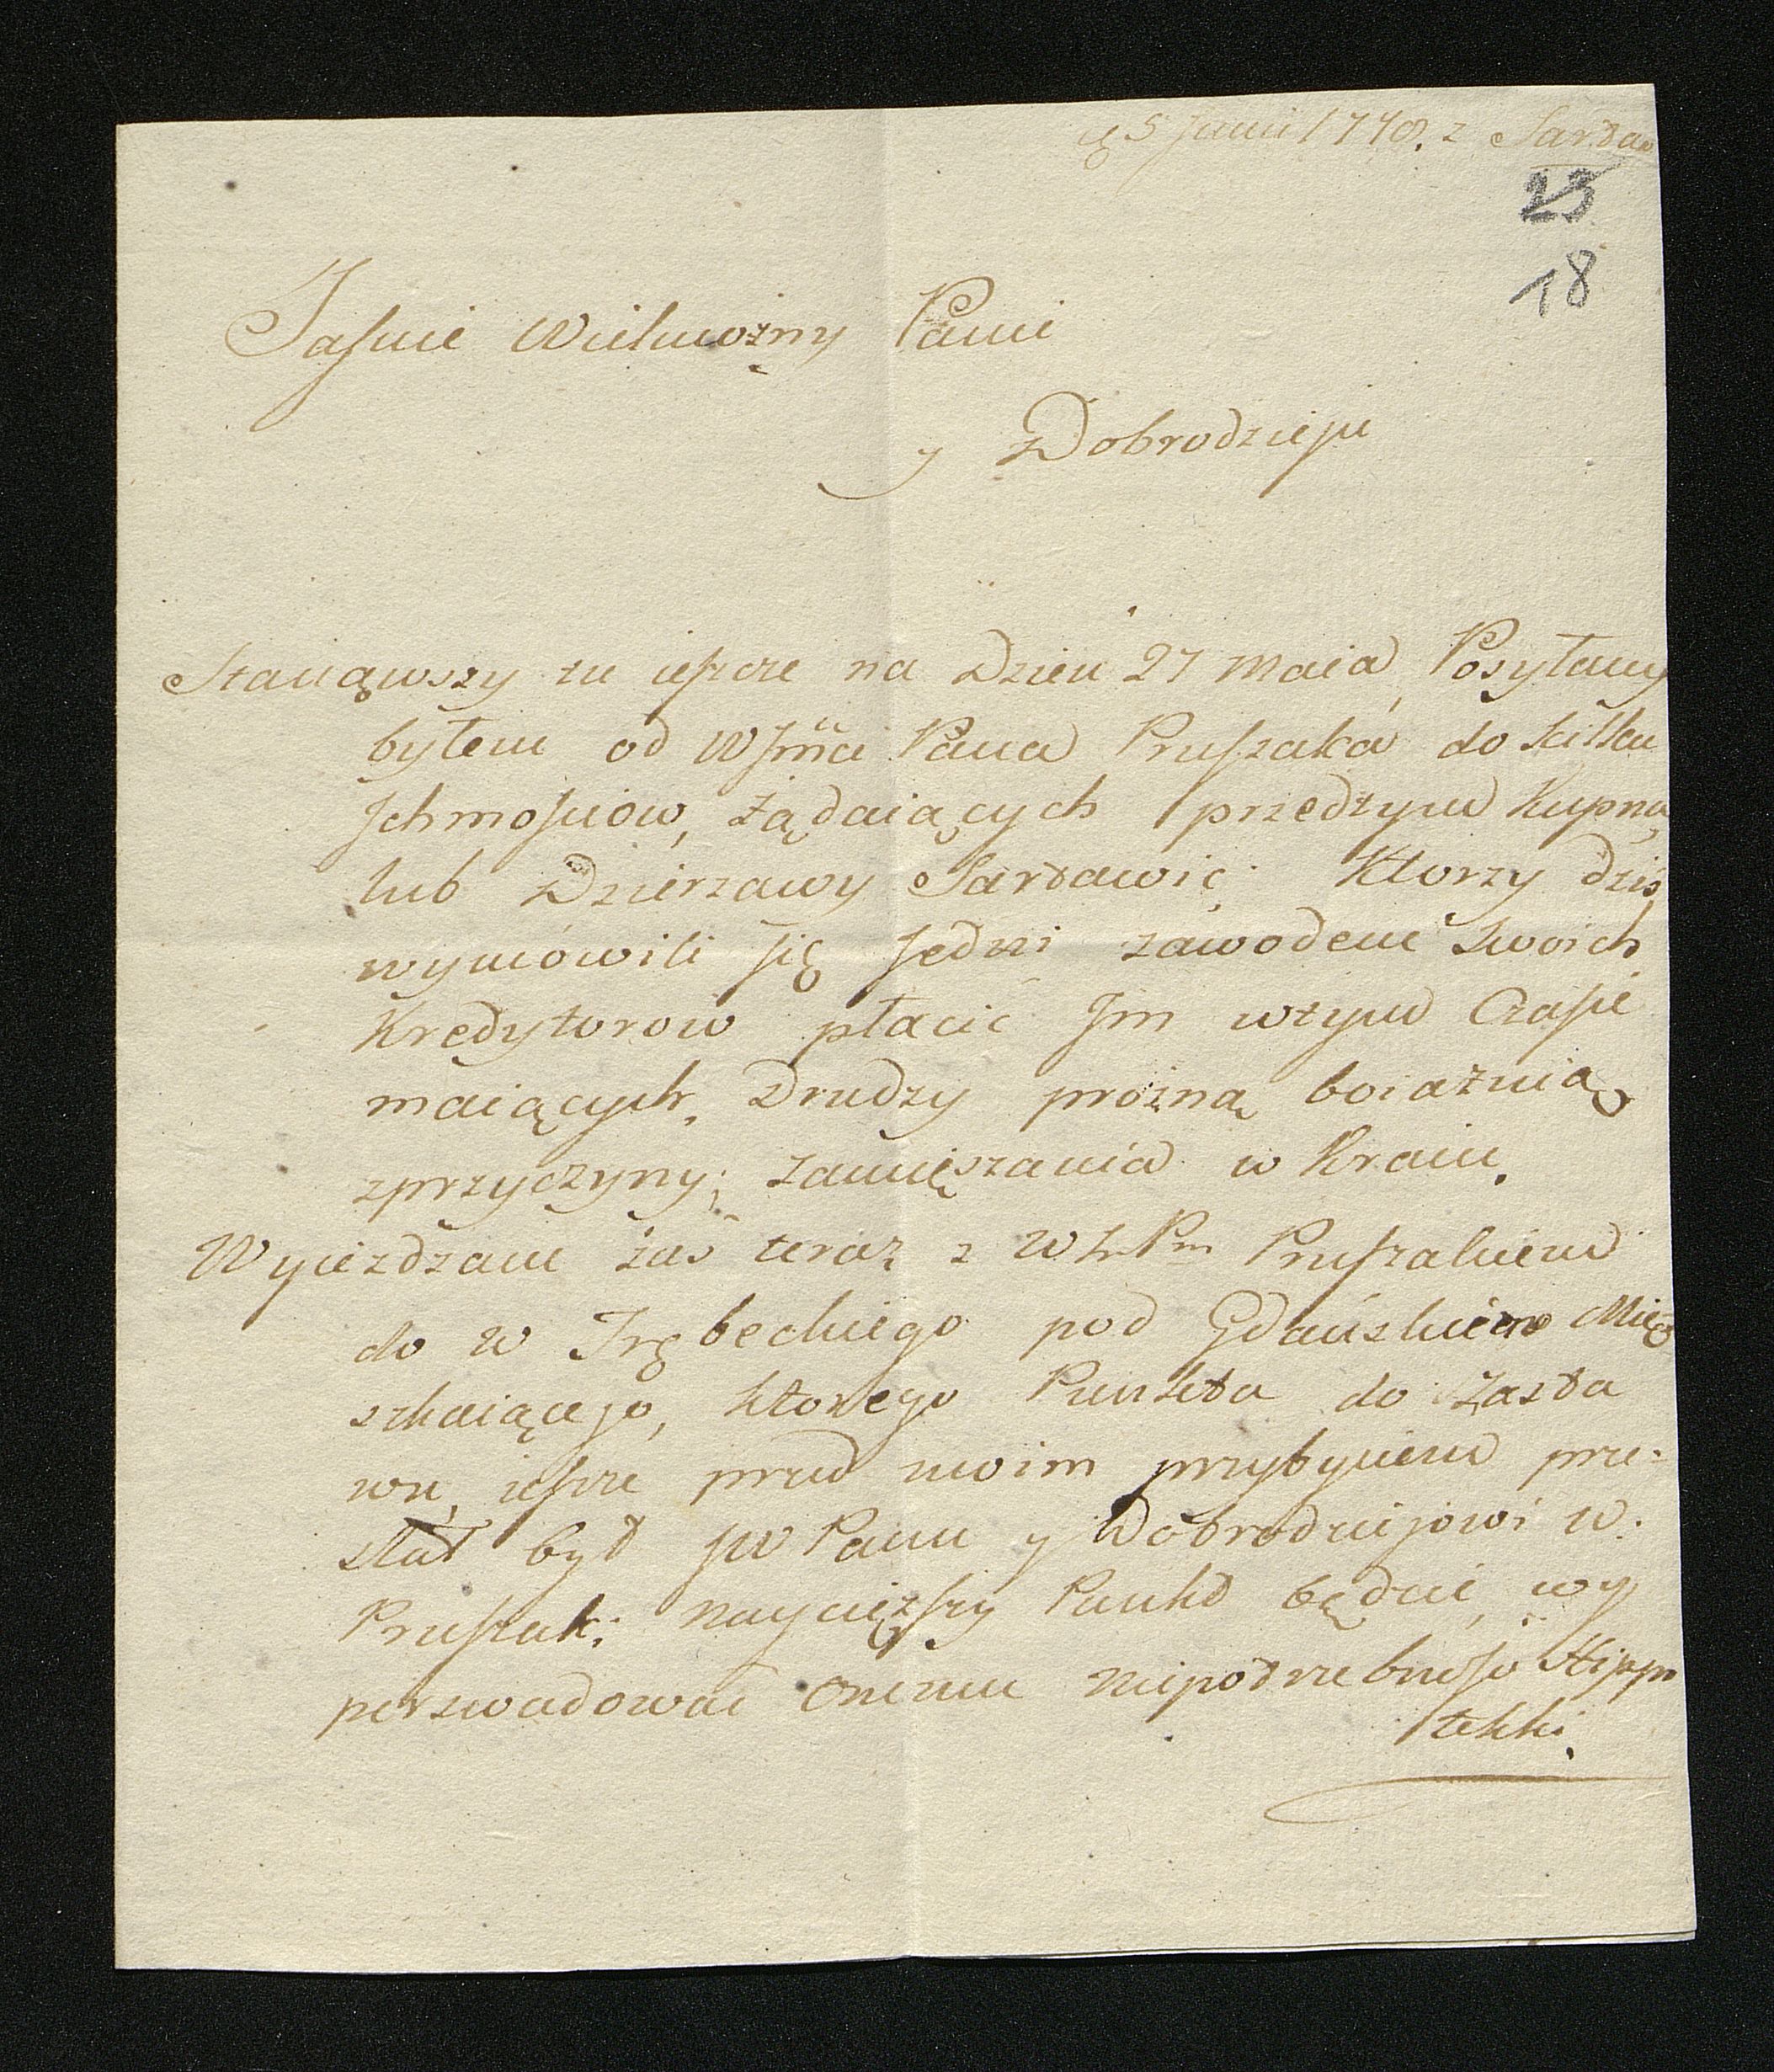 5 Junii 17 z Sartaw
23
18
Jaśnie Wielmożny Panie
y Dobrodzieju
Stanąwszy tu ieszcze na Dzien 27 Maia, Posyłany
byłem od WJmci Pana Pruszaka do kilku
Jchmościow, żądaiących przedtym Kupna,
lub Dzierzawy Sartawic. Ktorzy dziś
wymówili się Jedni zawodem swoich
Kredytorow płacić Jm wtym Czasie
maiących, Drudzy prożną boiaźnią
zprzyczyny, zamięszania w Kraiu.
Wyiezdzam zaś teraz z W Pruszakiem
do W Trębeckiego pod Gdańskiem Mię
szkaiącego, ktorego Punkta do Zasta
wu, ieszcze przed moim przybyciem prze-
słał był JW Panu y Dobrodziejowi W.
Pruszak: naycięższy Punkt będzie, wy
perswadować Onemu niepotrzebność Hippo
tekki.